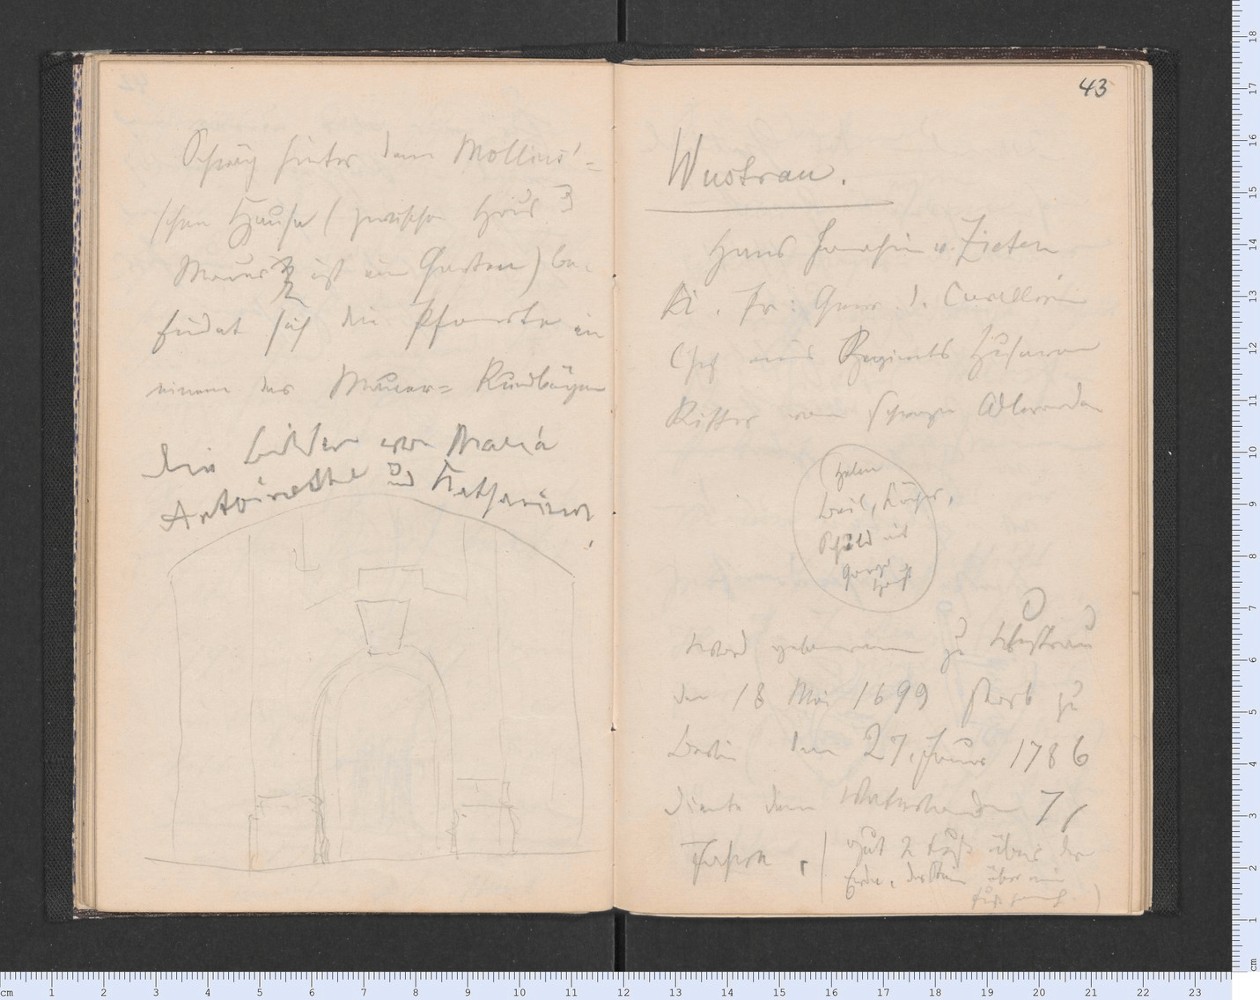 Schräg hinter dem Mollius'=
schen Hause (zwischen Haus u
Mauer ist ein Garten) be-
findet sich die Pforte in
einem der Mauer= Rundbögen
Die Bilder von Maria
Antoinette und Katharina
43
Wustrau.
Hans Joachim v. Zieten
K. Pr. Gen. d. Cavallerie
Chef eines Regiments Husaren
Ritter vom Schwarzen Adlerorden
Helm
Beil, Köcher,
Schild mit
Gorgo
haupt
Ward geboren zu Wustrau
den 18 Mai 1699 starb zu
Berlin den 27. Januar 1786
diente dem Vaterlande 71
Jahre. (gut 2 Fuß über der
Erde. der Stein über ein
Fuß hoch)